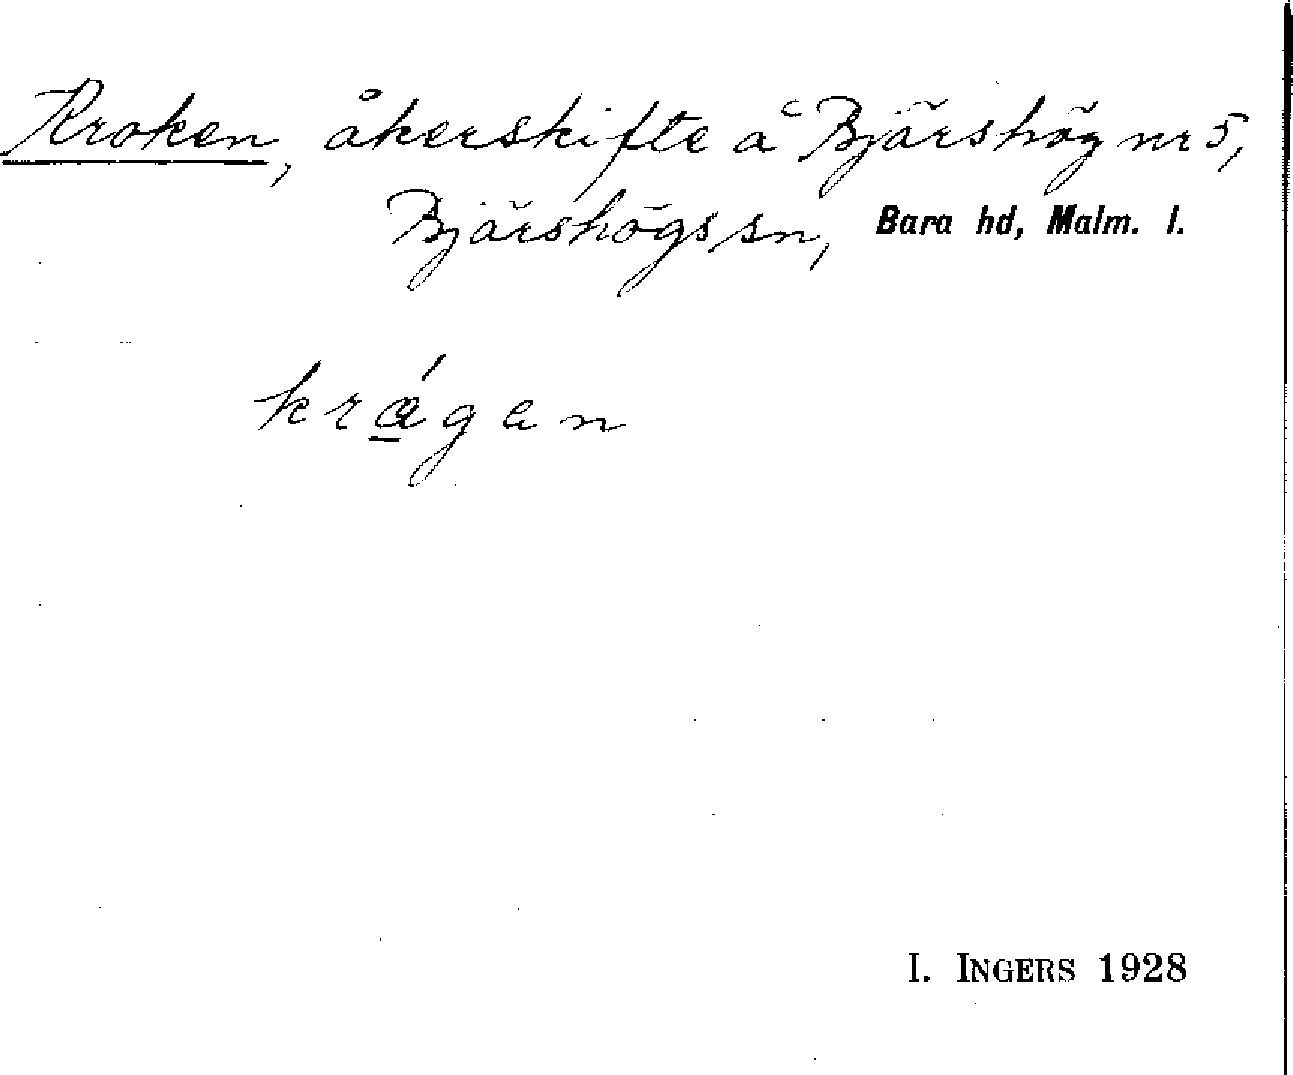 Kroken, åkerskifte å Bjärshög nr 5,
Bjärshögs sn, Bara hd, Malm. l.
krǻgen
I. INGERS 1928